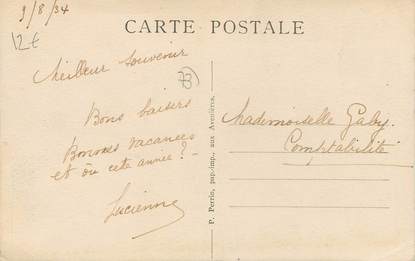 9/8/34
12€
CARTE POSTALE
Meilleur souvenir
73
Bons baisers
Bonnes vacances
et où cette année ?
Lucienne
P. Perrin, pap.-imp., aux Avenières.
Mademoiselle Gaby.
Comptabilité